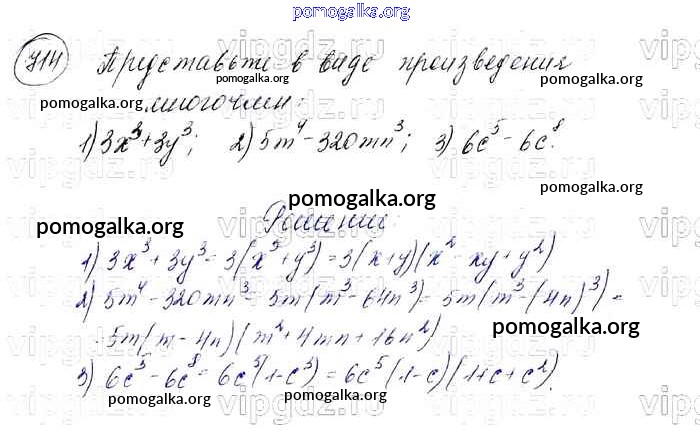 pomogalka.org
714 Представьте в виде произведения
pomogalka.org pomogalka.org
pomogalka.org многочлен:
1) 3x³+3y³; 2) 5m⁴-320mn³; 3) 6c⁵-6c⁸.
pomogalka.org
pomogalka.org
pomogalka.org Решение: pomogalka.org
1) 3x³+3y³=3(x³+y³)=3(x+y)(x²-xy+y²)
2) 5m⁴-320mn³=5m(m³-64n³)=5m(m³-(4n)³)=
=5m(m-4n)(m²+4mn+16n²) pomogalka.org
3) 6c⁵-6c⁸=6c⁵(1-c³)=6c⁵(1-c)(1+c+c²).
pomogalka.org pomogalka.org